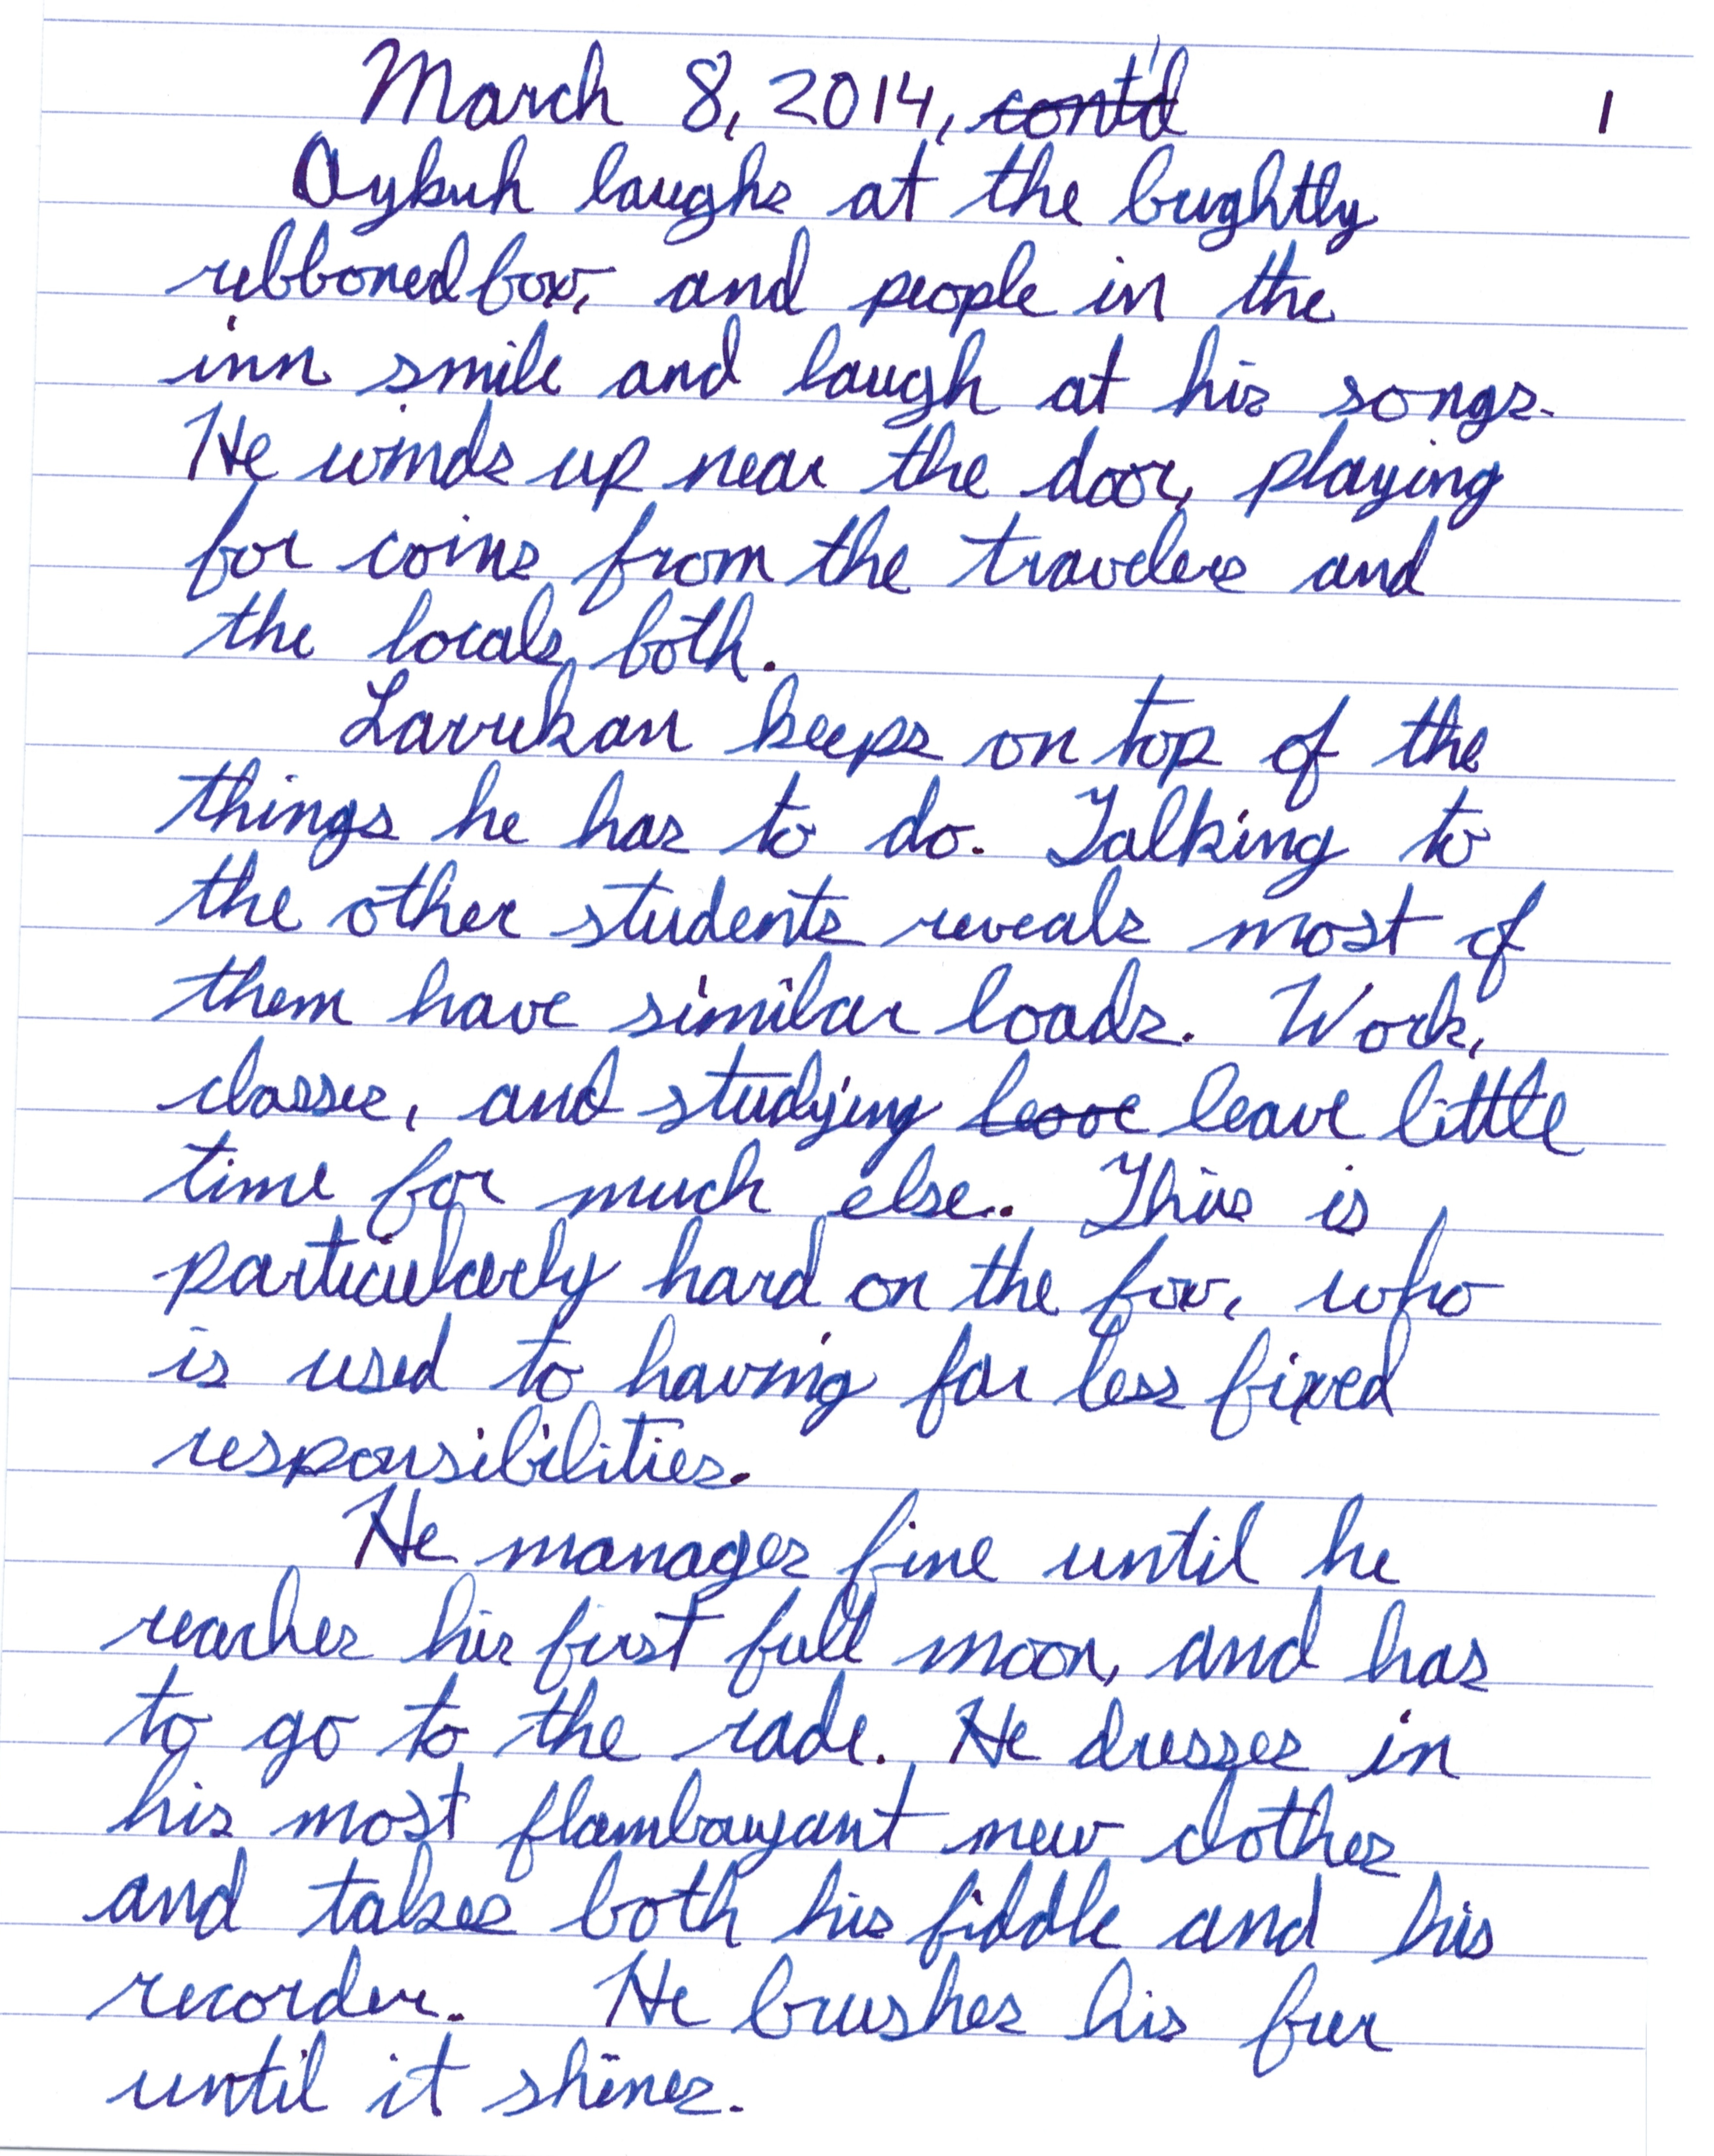 March 8, 2014, cont'd 1
Oykuh laughs at the brightly
ribboned fox, and people in the
inn smile and laugh at his songs.
He winds up near the door, playing
for coins from the travelers and
the locals both.
Lavrekan keeps on top of the
things he has to do. Talking to
the other students reveals most of
them have similar loads. Work,
classes, and studying leave leave little
time for much else. This is
particularly hard on the fox, who
is used to having far less fixed
responsibilities.
He manages fine until he
reaches his first full moon, and has
to go to the rade. He dresses in
his most flamboyant new clothes
and takes both his fiddle and his
recorder. He brushes his fur
until it shines.